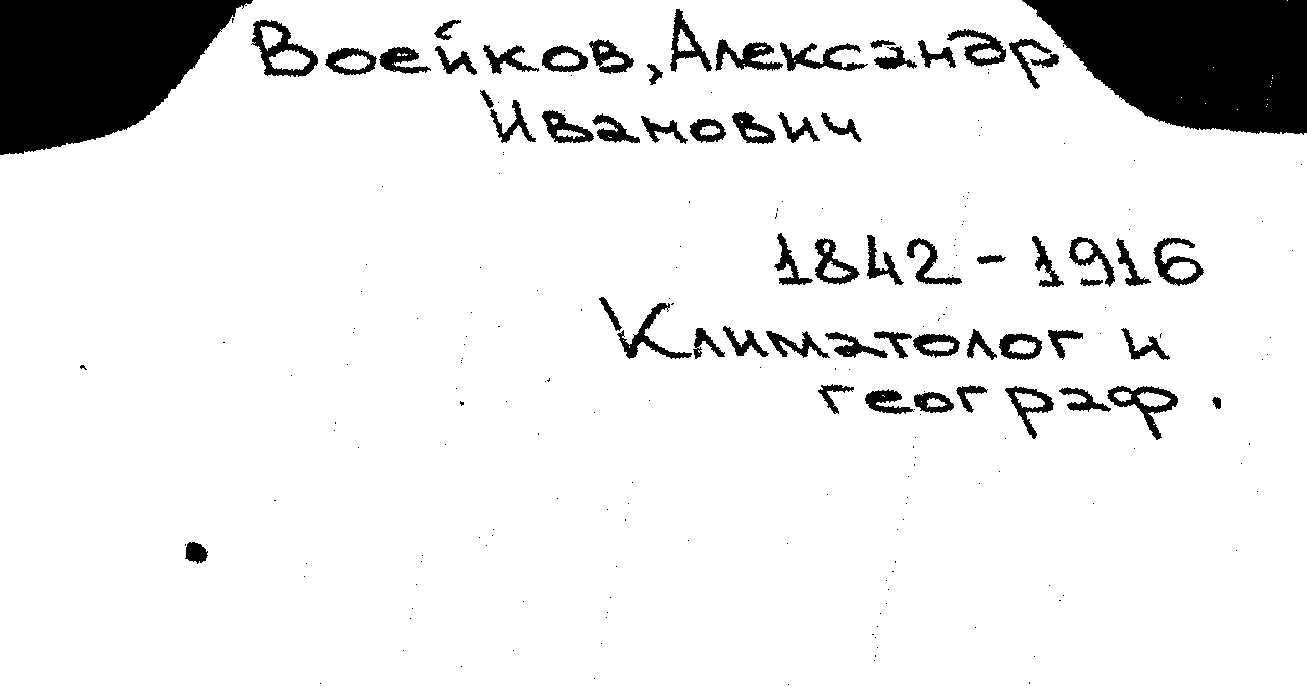 Воейков, Александр
Иванович
1842-1916
Климатолог и
географ.